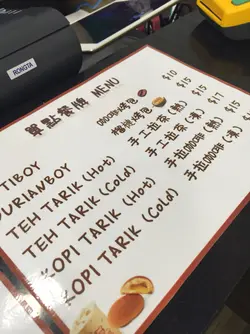 RONGTA
單點餐牌 MENU
TIBOY 咖啡烤包 $10
DURIANBOY 榴槤烤包 $15
TEH TARIK (Hot) 手工拉茶 (熱) $15
TEH TARIK (Cold) 手工拉茶 (凍) $17
KOPI TARIK (Hot) 手拉咖啡 (熱) $15
KOPI TARIK (Cold) 手拉咖啡 (凍) $17